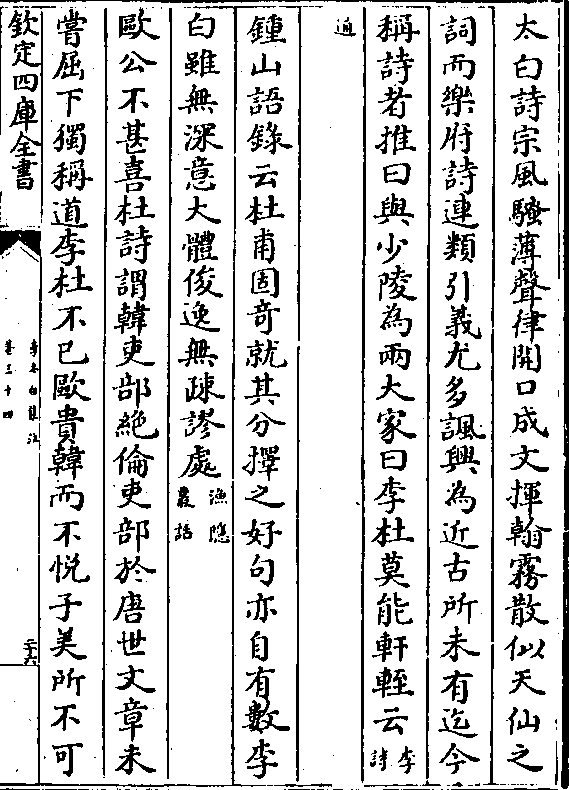 太白詩宗風騷薄聲律開口成文揮翰霧散似天仙之
詞而樂府詩連類引義尤多諷興為近古所未有迄今
稱詩者推曰與少陵為兩大家曰李杜莫能軒輊云李詩
通
鍾山語錄云杜甫固奇就其分擇之好句亦自有數李
白雖無深意大體俊逸無疎謬處漁隱叢話
歐公不甚喜杜詩謂韓吏部絶倫吏部於唐世文章未
嘗屈下獨稱道李杜不已歐貴韓而不悅子美所不可
欽定四庫全書
李太白集注
卷三十四
二十六